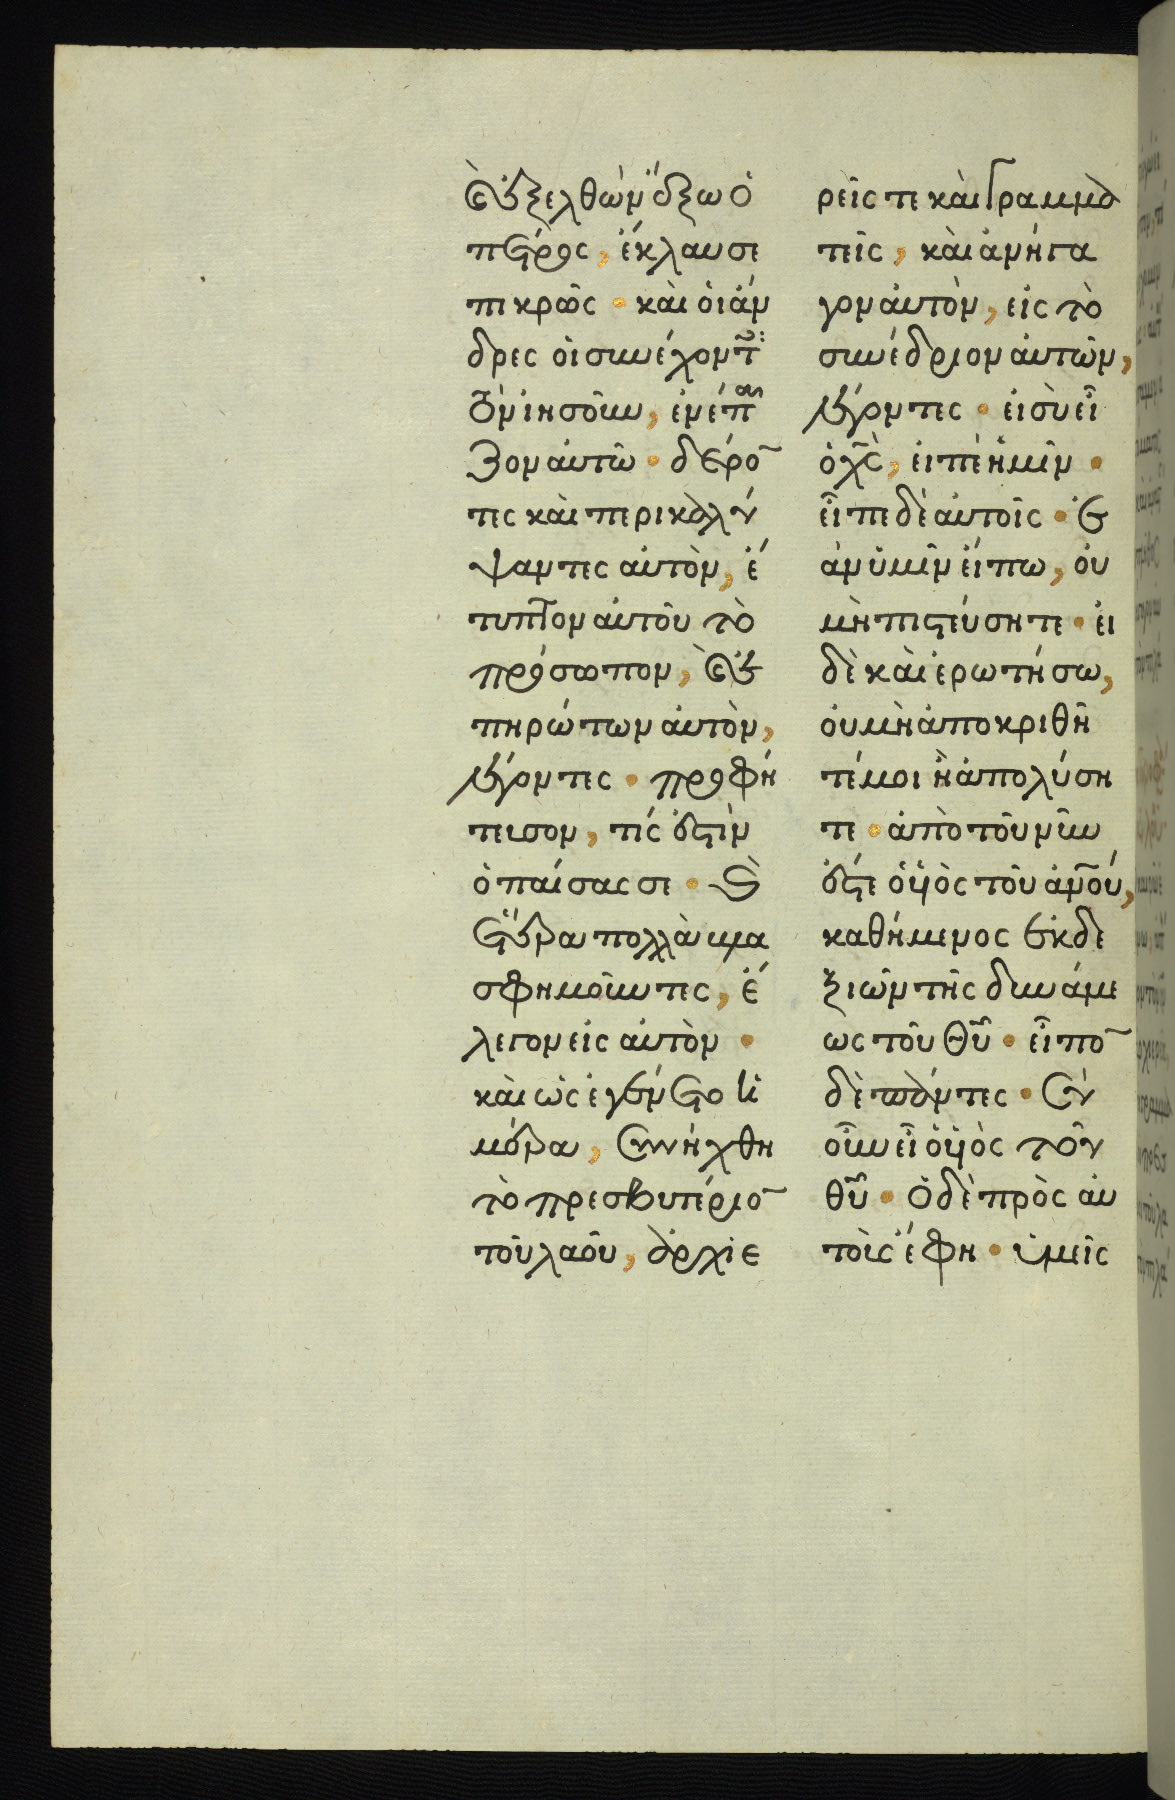 καὶ ἐξελθὼν ἔξω ὁ
πέτρος, ἔκλαυσε
πικρῶς · καὶ οἱ ἄν
δρες οἱ συνέχοντ(ες)
τὸν ἰησοῦν, ἐνέπαι
ζον αὐτῶ · δέρο̅
τες καὶ περικαλύ
ψαντες αὐτὸν, ἔ
τυπτον αὐτοῦ τὸ
πρόσωπον, καὶ ἐ
πηρώτων αὐτὸν,
λέγοντες · προφή
τευσον, τίς ἐστὶν
ὁ παίσας σε · καὶ
ἕτερα πολλὰ βλα
σφημοῦντες, ἔ
λεγον εἰς αὐτὸν ·
καὶ ὡς ἐγένετο ἡ
μέρα, συνήχθη
τὸ πρεσβυτέριο̅
τοῦ λαοῦ, ἀρχιε
ρεῖς τε καὶ γραμμα
τεῖς, καὶ ἀνήγα
γον αὐτὸν, εἰς τὸ
συνέδριον αὐτῶν,
λέγοντες · εἰ σὺ εἶ
ὁ χ̅ς̅, εἰπὲ ἡμῖν ·
εἶπε δὲ αὐτοῖς · ἐ
ὰν ὑμῖν εἴπω, οὐ
μὴ πιστεύσητε · ἐὰν
δὲ καὶ ἐρωτήσω,
οὐ μὴ ἀποκριθῆ
τέ μοι ἢ ἀπολύση
τε · ἀπὸ τοῦ νῦν
ἔσται ὁ υἱὸς τοῦ ἀν̅ου̅,
καθήμενος ἐκ δε
ξιῶν τῆς δυνάμε
ως τοῦ θ̅υ̅ · εἶπο̅
δὲ πάντες · σὺ
οὖν εἶ ὁ υἱὸς τοῦ
θ̅υ̅ · ὁ δὲ πρὸς αὐ
τοὺς ἔφη · ὑμεῖς